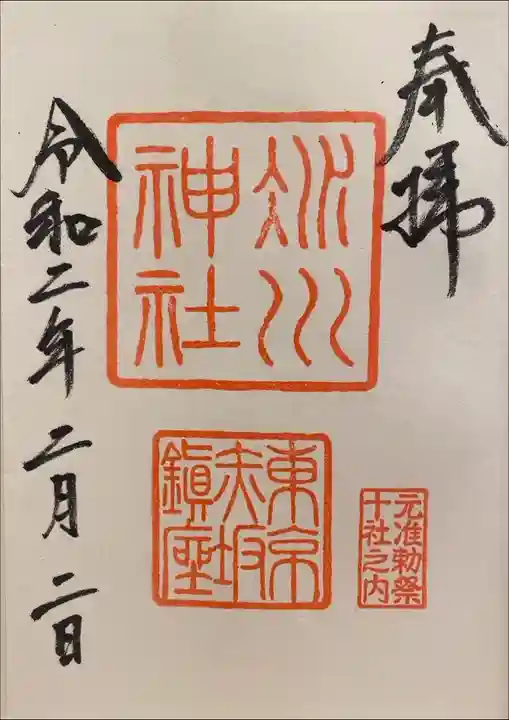 奉拝
氷川
神社
東京
赤坂
鎭座
元准勅祭
十社之内
令和二年二月二日